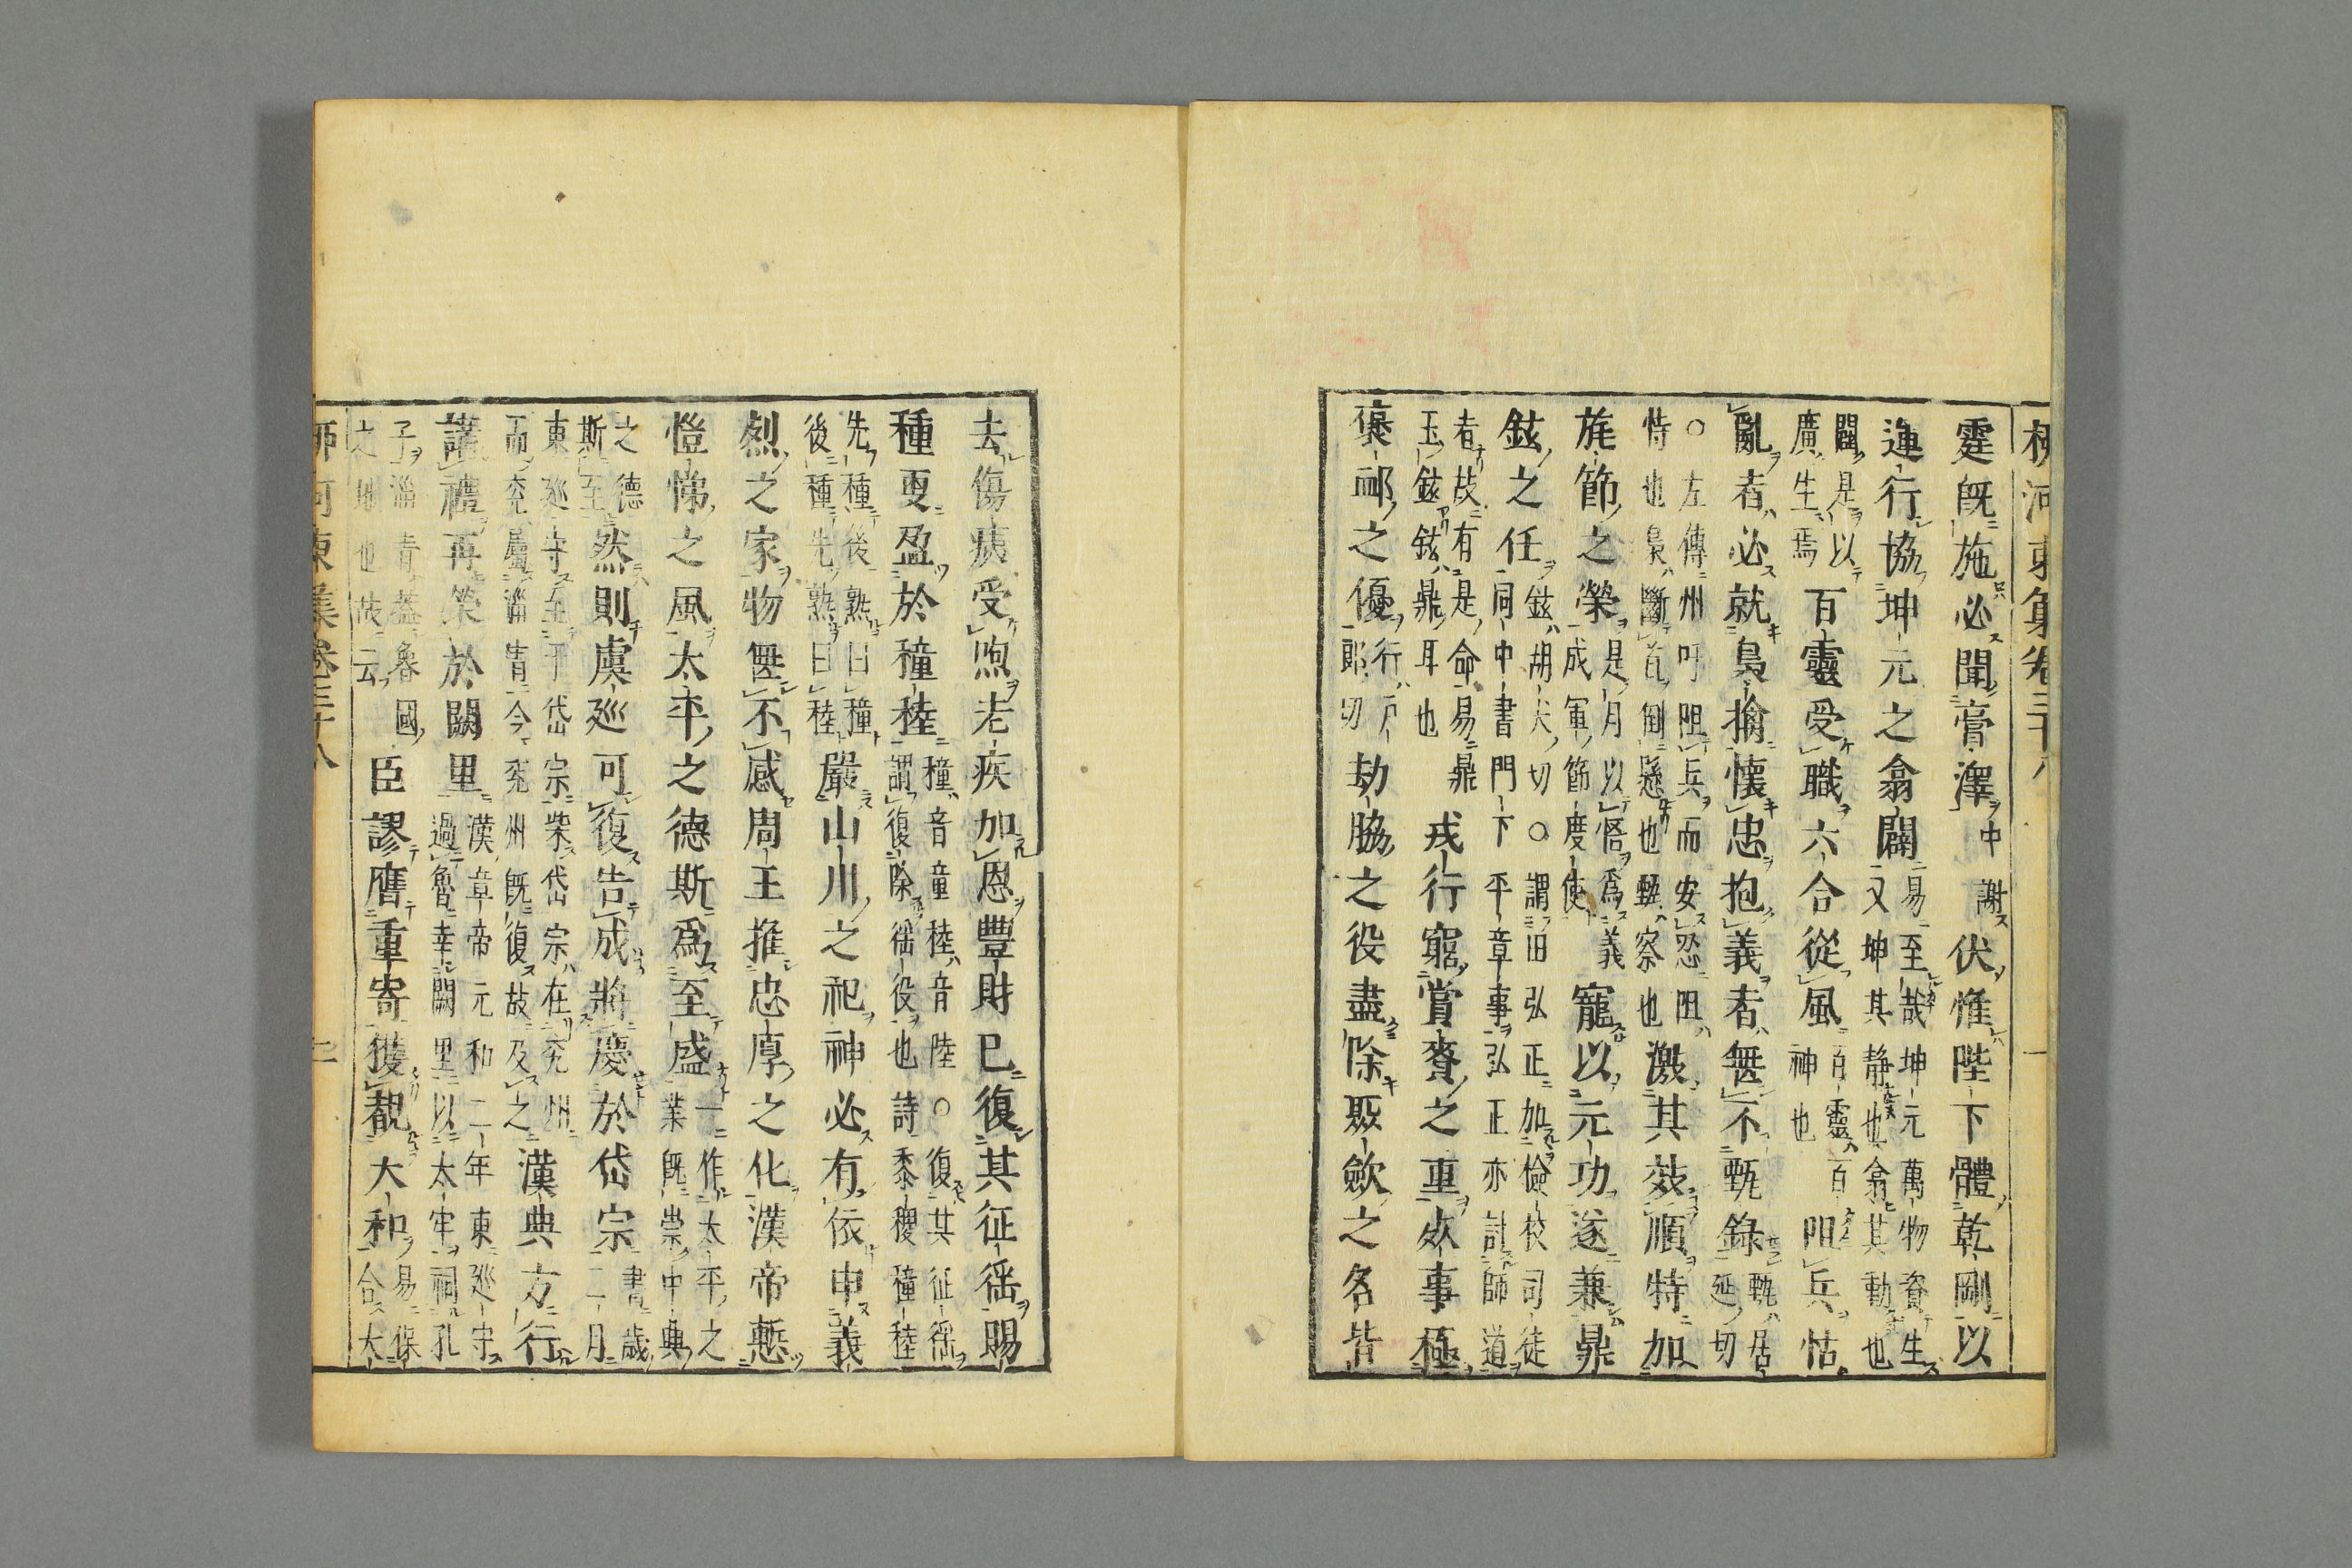 柳河東集卷三十八
霆既施必聞膏澤中謝伏惟陛下體乾剛以
運行協坤元之翕闢易至哉坤元萬物資生又坤其静也翕其動也
闢是以廣生焉百靈受職六合從風百靈百神也阻兵怙
亂者必就梟擒懷忠抱義者無不甄錄甄居延切
○左傳州吁阻兵而安忍阻恃也梟斷首倒懸也甄察也激其效順特加
旄節之榮是月以悟爲義成軍節度使寵以元功遂兼鼎
鉉之任鉉胡犬切○謂田弘正加檢校司徒同中書門下平章事弘正亦討師道
者故有是命易鼎玉鉉鉉鼎耳也戎行窮賞賚之重夾事極
褒郕之優行户郎切劫脇之役盡除聚歛之名皆
去傷痍受煦老疾加恩豐財巳復其征徭賜
種更盈於穜稑穜音童稑音陸○復其征徭謂復除徭役也詩黍稷穜稑
先種後熟曰穜後種先熟曰稑嚴山川之祀神必有依申義
烈之家物無不感周王推忠厚之化漢帝慙
愷悌之風太平之德斯爲至盛一作太平之業既崇中典之德
斯至然則虞巡可復告成將慶於岱宗書歲二月
東巡守至于岱宗柴岱宗在兖州而兖屬淄青今兖州既復故及之漢典方行
講禮再榮於闕里漢章帝元和二年東巡守過魯幸闕里以太牢祠孔
子淄青蓋魯國之地也故云臣謬膺重寄獲覩大和易保合大
柳河東集卷三十八 二